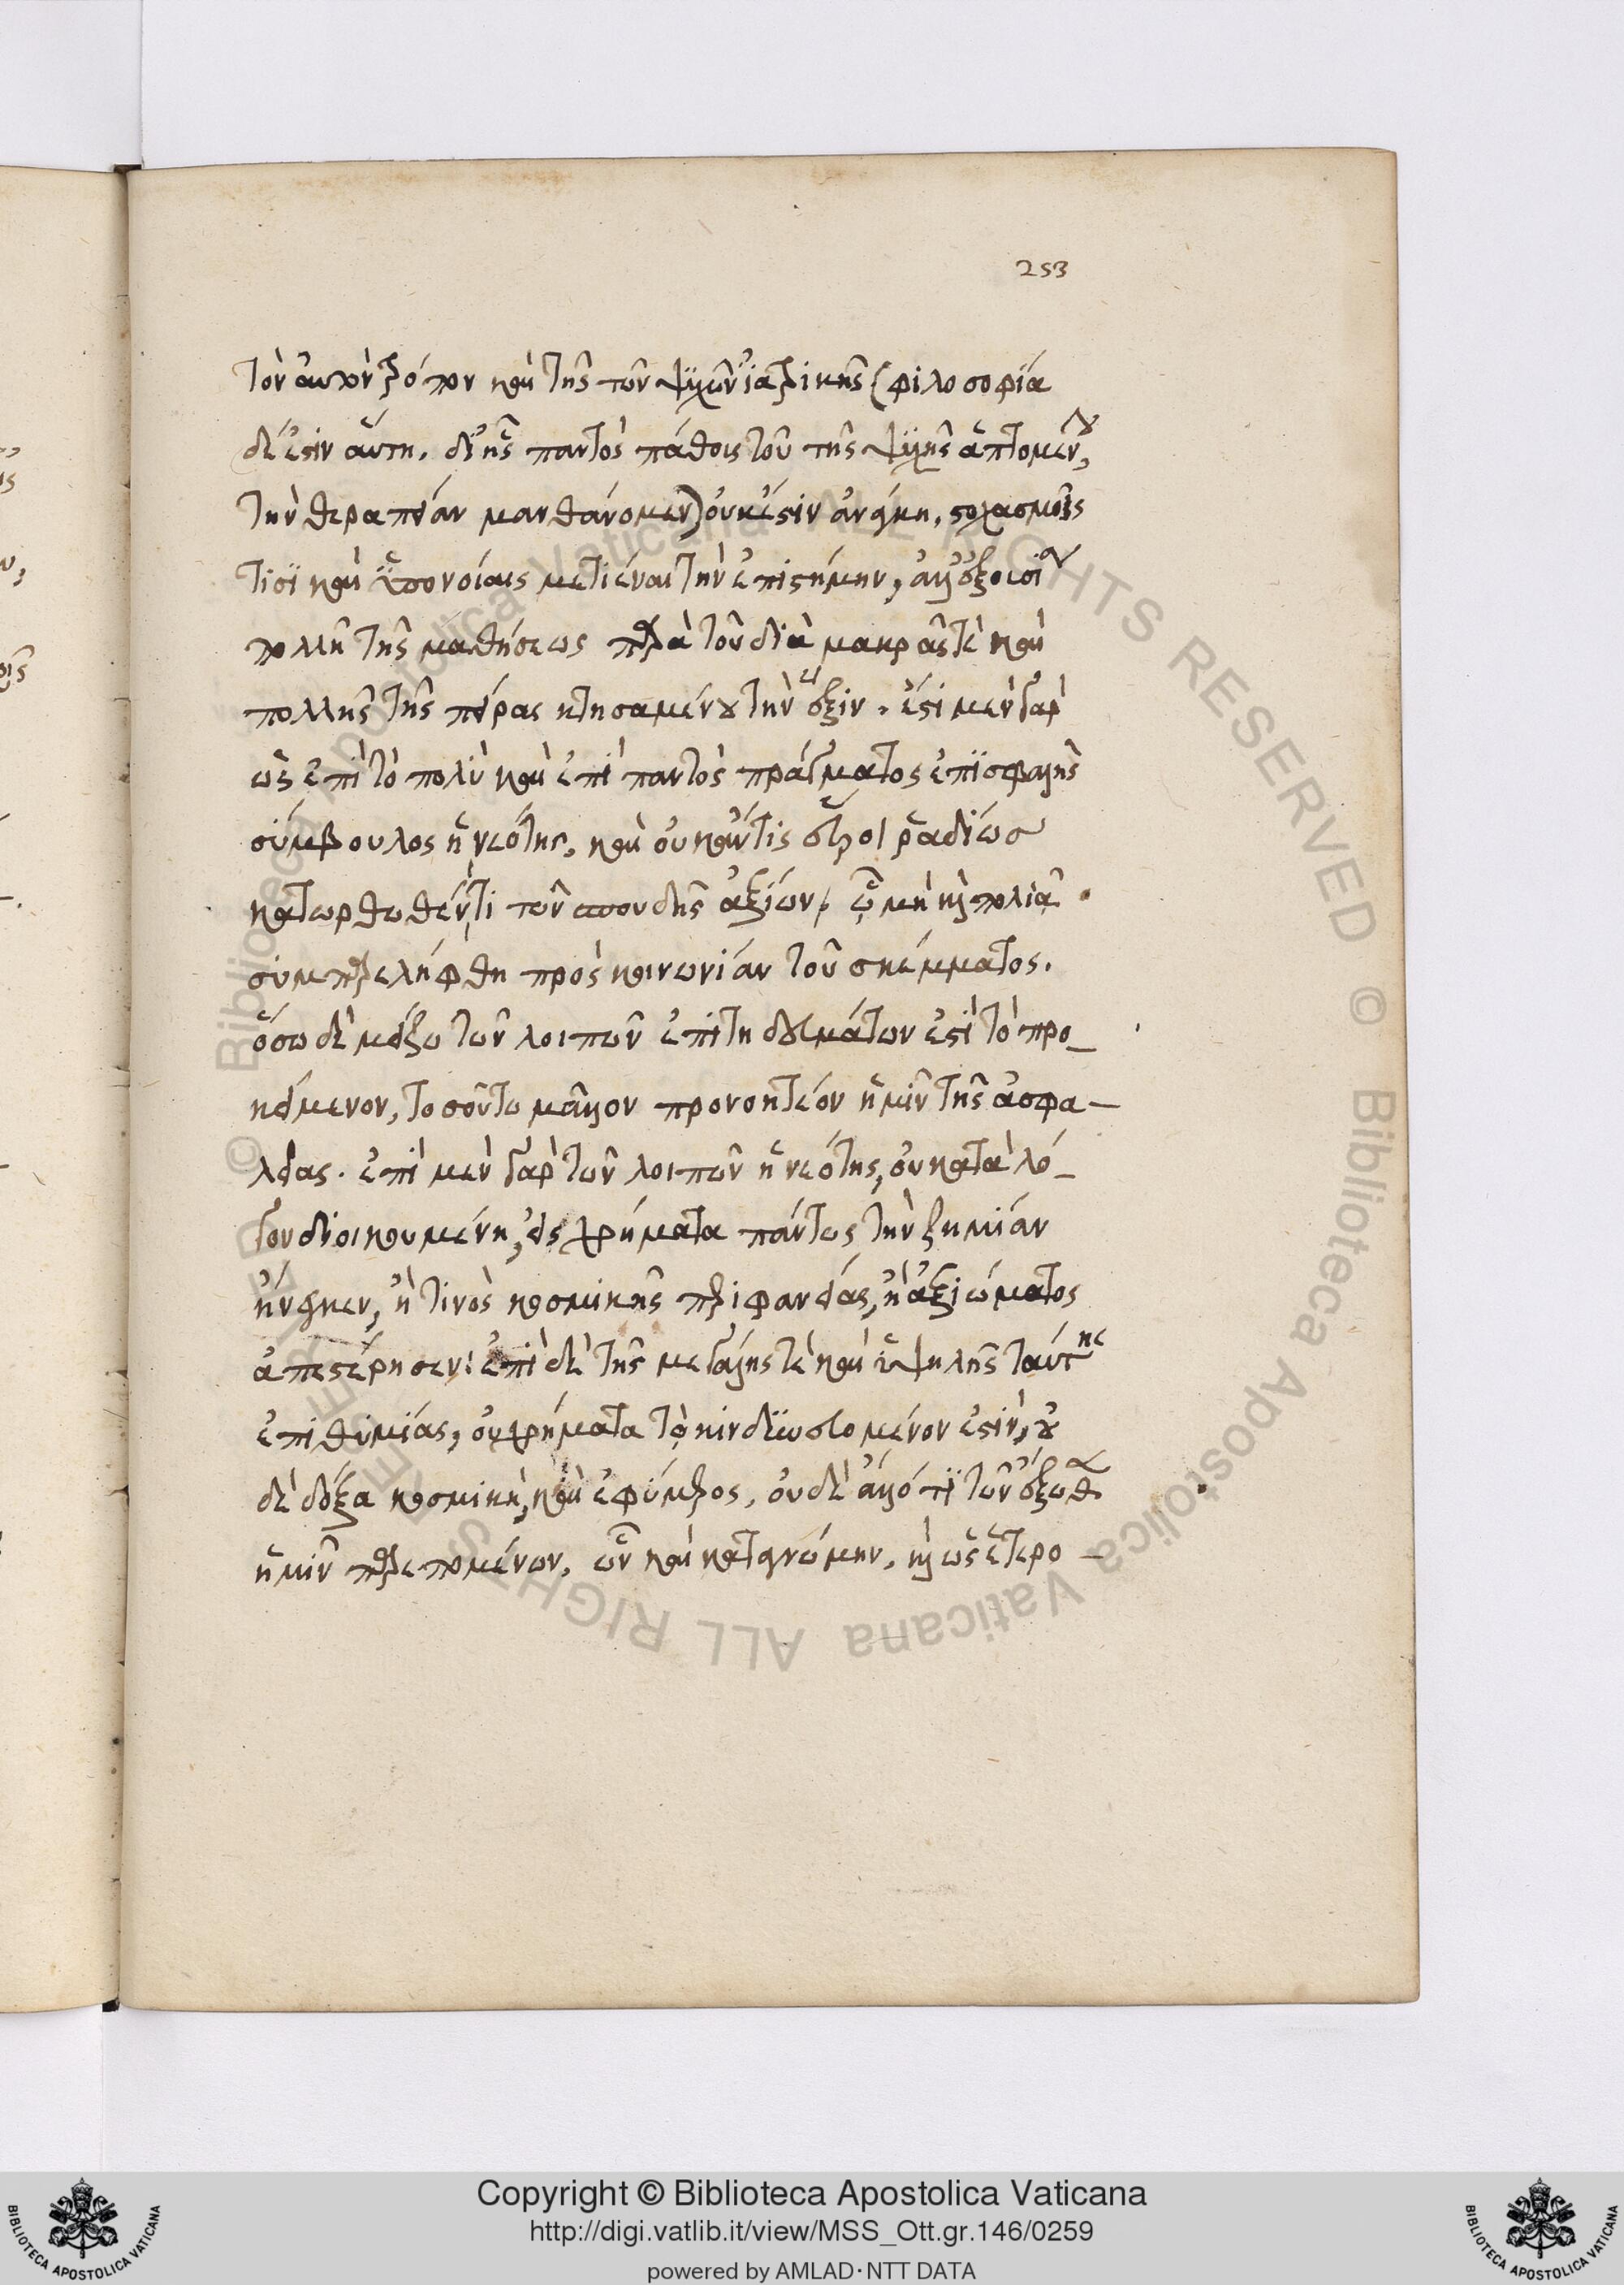 253
τὸν αὐτὸν τρόπον καὶ τῆς τῶν ψυχῶν ἰατρικῆς (φιλοσοφία
δέ ἐστιν αὕτη, δι' ἧς παντὸς πάθους τοῦ τῆς ψυχῆς ἁπτομένου,
τὴν θεραπείαν μανθάνομεν) οὐκ ἔστιν ἀνάγκη, στοχασμοῖς
τισὶ καὶ ὑπονοίαις μετιέναι τὴν ἐπιστήμην, ἀλλ' ἐξουσία
πολλὴ τῆς μαθήσεως παρὰ τοῦ διὰ μακρᾶς τε καὶ
πολλῆς τῆς πείρας κτησαμένου τὴν ἕξιν. ἔστι μὲν γὰρ
ὡς ἐπὶ τὸ πολὺ καὶ ἐπὶ παντὸς πράγματος ἐπισφαλὴς
σύμβουλος ἡ νεότης, καὶ οὐκ ἄν τις εὕροι ῥαδίως
κατορθωθέν τι τῶν σπουδῆς ἀξίων, ᾧ μὴ καὶ πολιὰ
συμπαρελήφθη πρὸς κοινωνίαν τοῦ σκέμματος.
ὅσω δὲ μεῖζω τῶν λοιπῶν ἐπιτηδευμάτων ἐστὶ τὸ προ-
κείμενον, τοσοῦτο μᾶλλον προνοητέον ἡμῖν τῆς ἀσφα-
λείας. ἐπὶ μὲν γὰρ τῶν λοιπῶν ἡ νεότης, οὐ κατὰ λό-
γον διοικουμένη, εἰς χρήματα πάντως τὴν ζημίαν
ἤνεγκεν, ἢ τινὸς κοσμικῆς περιφανείας, ἢ ἀξιώματος
ἀπεστέρησεν· ἐπὶ δὲ τῆς μεγάλης τε καὶ ὑψηλῆς ταύτης
ἐπιθυμίας, οὐ χρήματα τὸ κινδυνευόμενόν ἐστιν, οὐ
δὲ δόξα κοσμικὴ, καὶ ἐφύμερος, οὐδὲ ἄλλό τι τῶν ἔξωθεν
ἡμῖν παρεπομένων, ὧν καὶ κατὰ γνώμην, καὶ ὡς ἑτέρο-
Copyright © Biblioteca Apostolica Vaticana
http://digi.vatlib.it/view/MSS_Ott.gr.146/0259
powered by AMLAD·NTT DATA